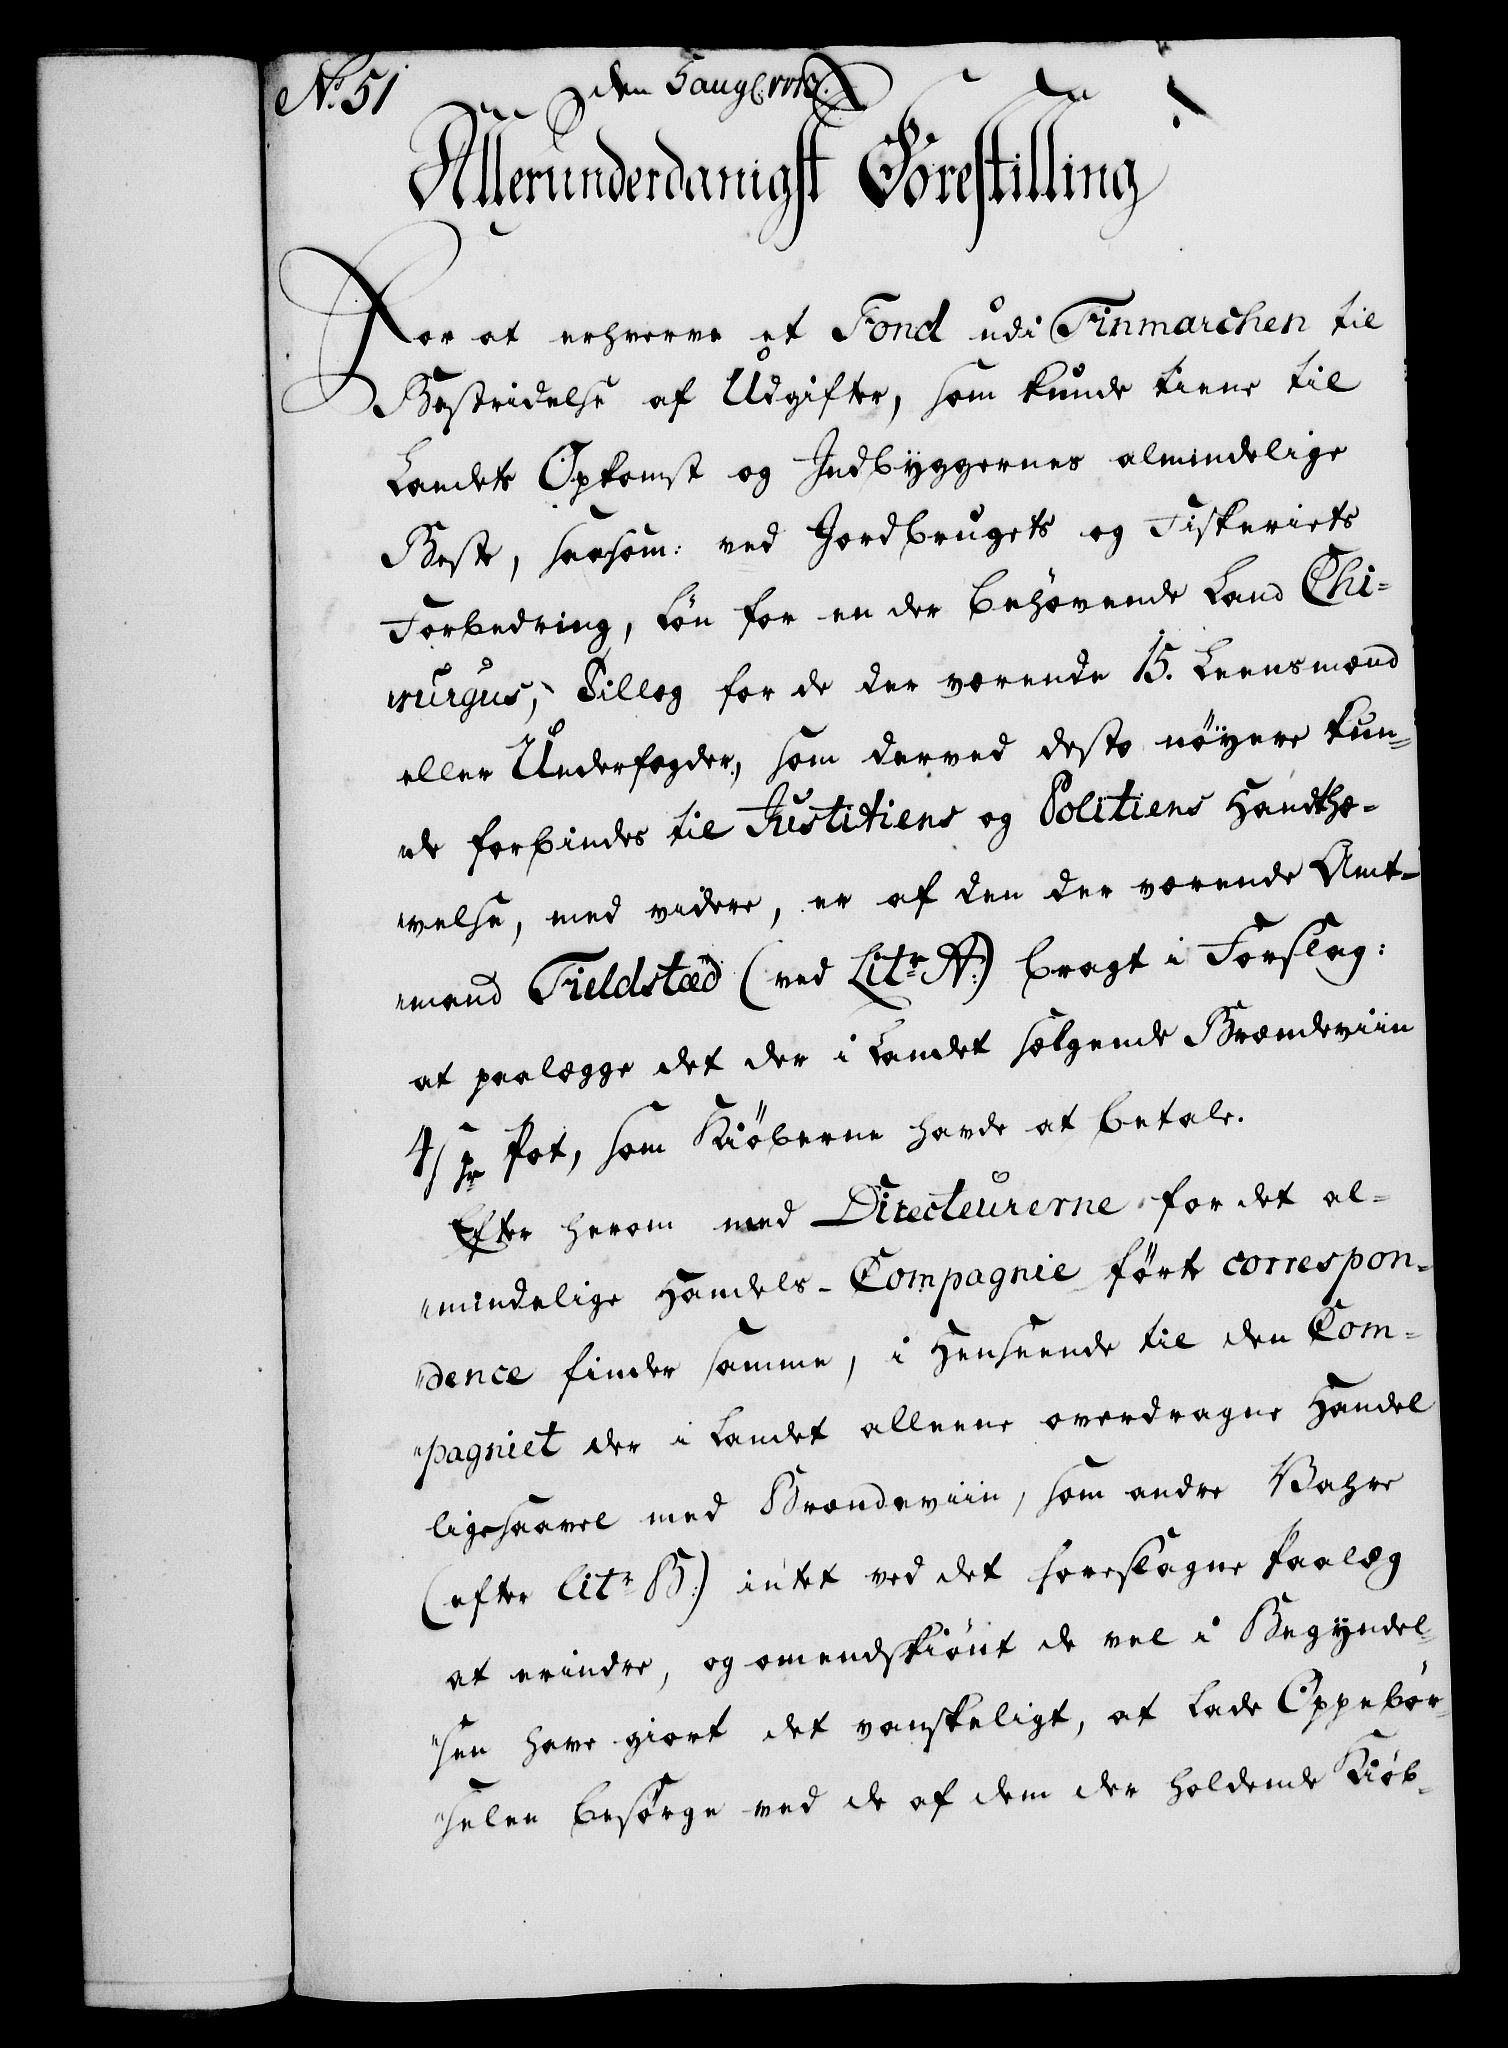 No. 51
den 5 aug
Allerunderdanigst Forestilling
For at erhverve et Fond udi Finmarchen til
Bestridelse af Udgifter, som kunde tiene til
Landets Opkomst og Indbyggernes almindelige
Beste, saasom: ved Jordbrugets og Fiskeriets
Forbedring, Lön for en der behövende Land Chi-
rurgus, Tillæg for de der værende 15. Leensmænd
eller Underfogder, som derved desto nöyere kun-
de forbindes til Justitiens og Politiens Handthæ-
velse, med videre, er af den der værende Amt-
mand Fieldstæd (ved Litr A:) bragt i Forslag:
at paalægge det der i Landet sælgende Brændeviin
4 s pr Pot, som Kiöberne havde at betale.
Efter herom med Directeurerne for det al-
mindelige Handels-Compagnie förte correspon-
dence finder samme, i Henseende til den Com-
pagniet der i Landet alleene overdragne Handel
ligesaavel med Brændeviin, som andre Vahre
(efter Litr B:) intet ved det foreslagne Paalæg
at erindre, og omendskiönt de vel i Begyndel-
sen have giort det vanskeligt, at lade Oppebör-
selen besörge ved de af dem der holdende Kiöb-